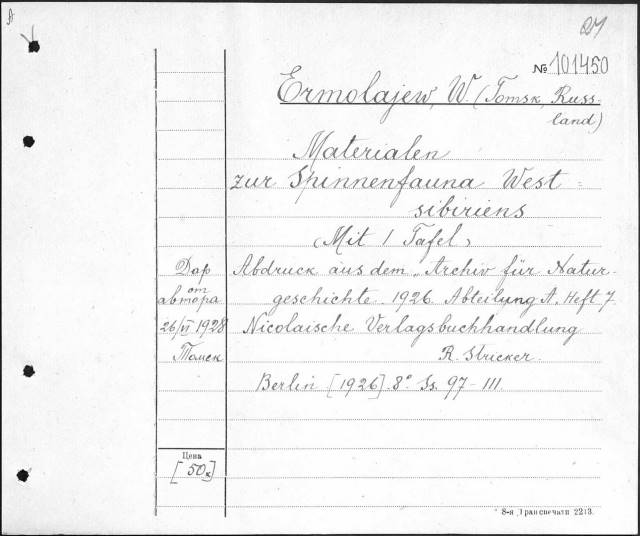 A
27
№ 101450
Ermolajew, W. (Tomsk, Russ-
land)
Materialen
zur Spinnenfauna West=
sibiriens
(Mit 1 Tafel)
Дар
от
автора
26/VI 1928
Томск
Abdruck aus dem „Archiv für Natur-
geschichte. 1926. Abteilung A. Heft 7.
Nicolaische Verlagsbuchhandlung
R. Stricker.
Berlin [1926]. 8° Ss. 97-111
Цена
[50к]
8-я Транспечати 2213.